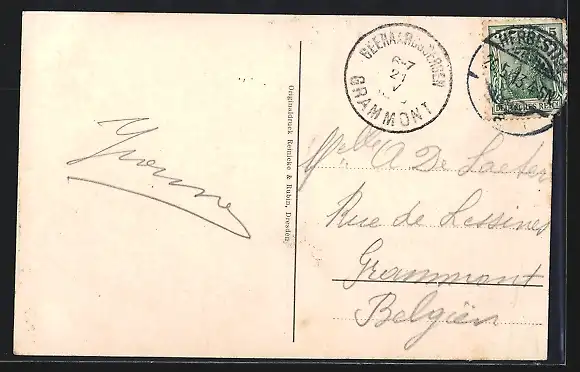 Yvonne
Originaldruck Reinicke & Rubin, Dresden
GEERAARDSBERGEN
6-7
21
V
GRAMMONT
5
DEUTSCHES REICH
Mlle A De Saeter
Rue de Lessines
Grammont
Belgien